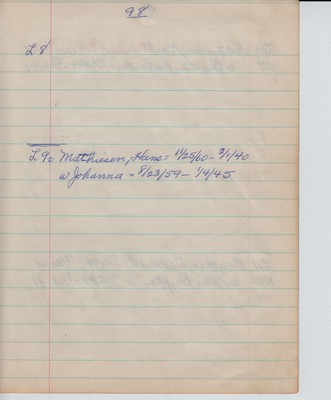 98
L8
L9= Mathiesen, Hans = 11/25/60 - 3/1/40
w Johanna = 8/23/59 - 1/4/45